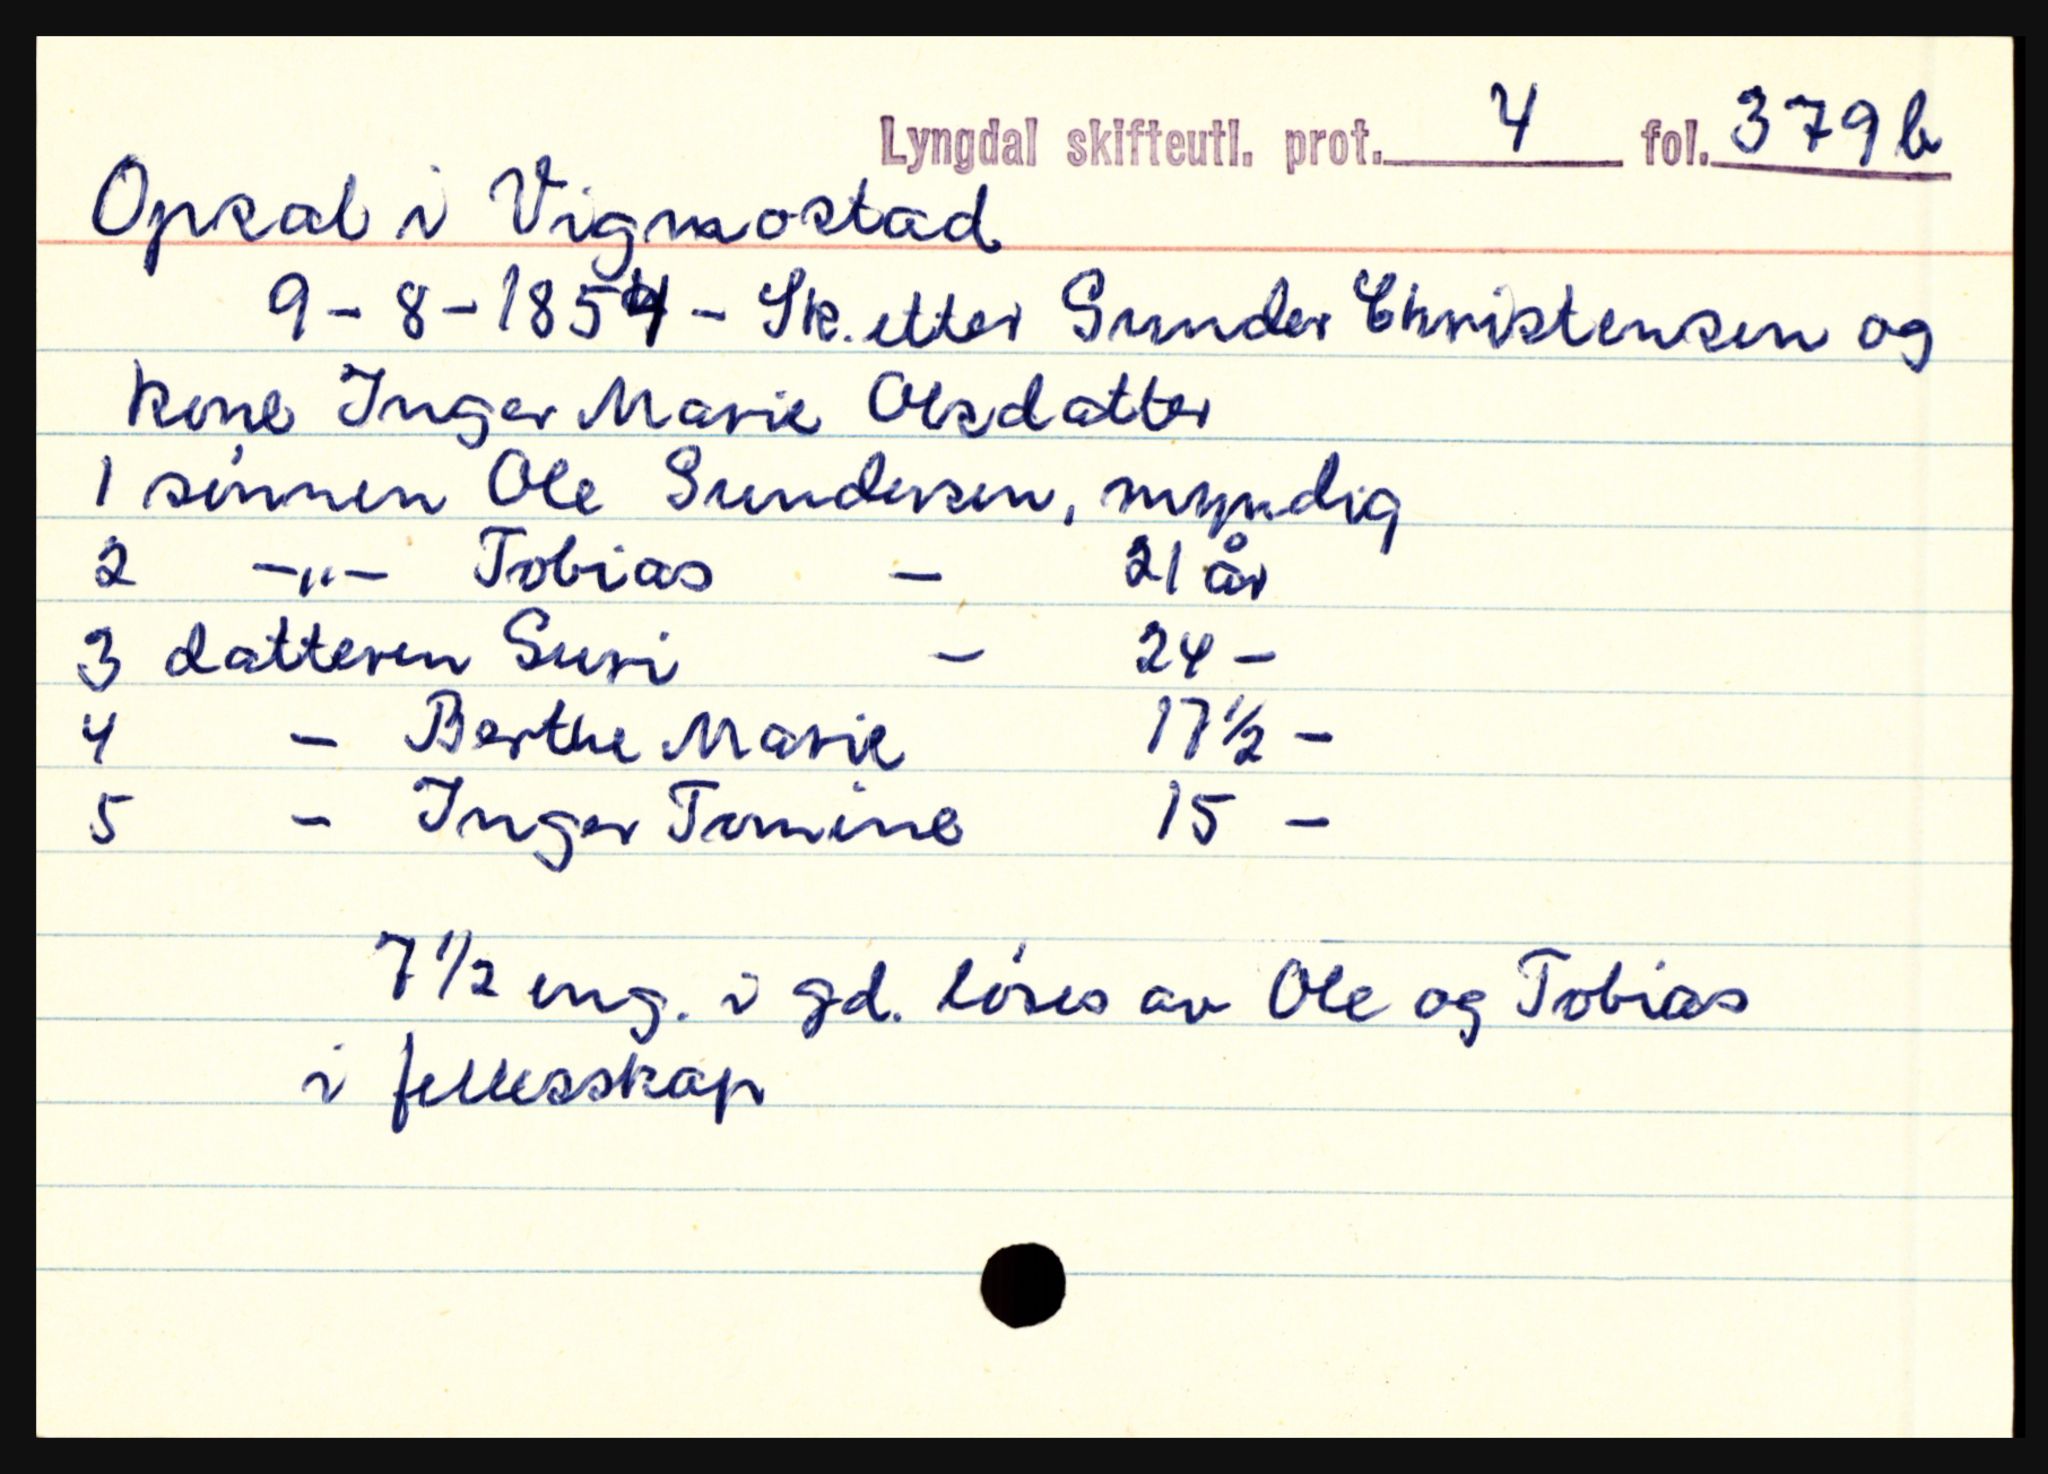 Lyngdal skifteutl. prot. 4 fol. 379b
Opsal i Vigmostad
9-8-1854 - Sk. etter Gunder Christensen og
kone Inger Marie Olsdatter
1 sönnen Ole Gundersen, myndig
2 -"- Tobias - 21 år
3 datteren Guri - 24 -
4 - Berthe Marie 17 1/2 -
5 - Inger Tomine 15 -
7 1/2 eng. i gd. löses av Ole og Tobias
i fellesskap